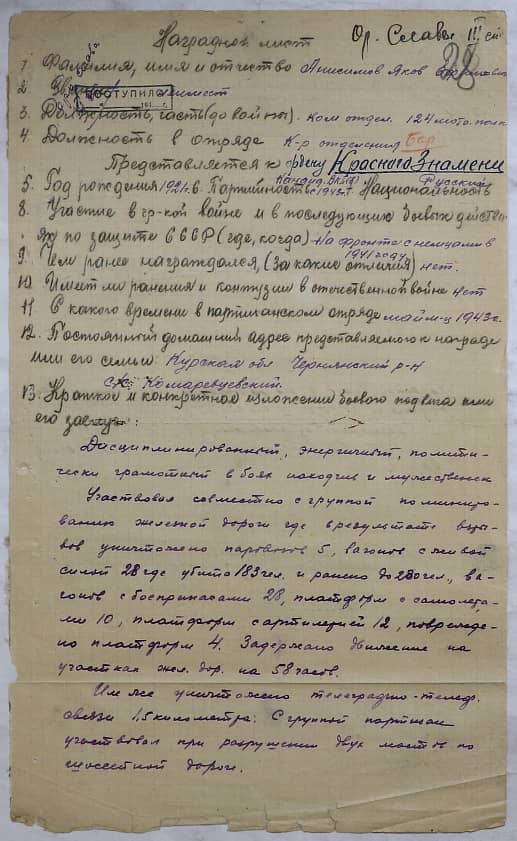 Наградной лист Ор. Славы III ст
28
1. Фамилия, имя и отчество Анисимов Яков
2. ПОСТУПИЛО
3. Должность, часть (до войны). Ком отдел. 124 мото. полк
4. Должность в отряде К-р отделения
Представляется к ордену Красного Знамени
5. Год рождения 1921 г. Партийность Канд. ВКПб с 1943 г. Национальность Русский
8. Участие в гр-кой войне и в последующих боевых действи-
ях по защите СССР (где, когда) На фронте с немцами в
1941 году
9. Чем ранее награждался, (за какие отличия) нет.
10 Имеет ли ранения и контузии в отечественной войне нет
11. С какого времени в партизанском отряде май м-ц 1943 г.
12. Постоянный домашний адрес представляемого к награде
или его семьи: Курская обл Чернянский р-н
с/х. Комаревцевский.
13. Краткое и конкретное изложение боевого подвига или
его заслуг:
Дисциплинированный, энергичный, полити-
чески грамотный в боях находчив и мужественен
Участвовал совместно с группой по миниро-
ванию железной дороги где в результате взры-
вов уничтожено паровозов 5, вагонов с живой
силой 28 где убито 183 чел. и ранено до 280 чел., ва-
гонов с боеприпасами 28, платформ с самолета-
ми 10, платформ с артилерией 12, поврежде-
но платформ 4. Задержано движение на
участках жел. дор. на 58 часов.
Им же уничтожено телеграфно-телеф.
связи 1,5 километра. С группой партизан
участвовал при разрушении двух мостов по
шоссейной дороге.